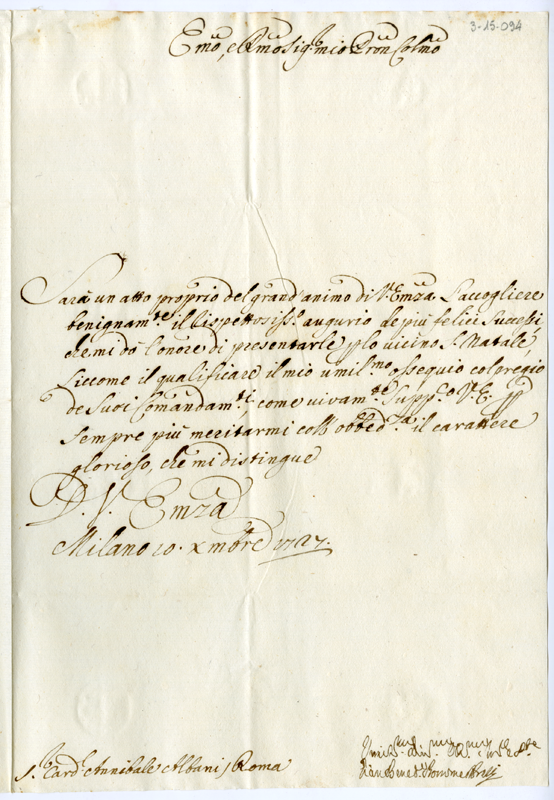 3-15-094
Emo, e Rmo Sig.r mio Pron Colmo
Sarà un atto proprio del grand'animo di V. Emza l'accogliere
benignam.te il rispettosiss.o augurio de più felici successi
che mi dò l'onore di presentarle p lo vicino S. Natale,
siccome il qualificare il mio umil.mo ossequio col pregio
de suoi Comandam.ti, come vivam.te supp.co V. E. p
sempre più meritarmi coll'obbed.za il carattere
glorioso, che mi distingue
D. V. Emza
Milano 10. Xmbre 1727.
S.r Card.e Annibale Albani / Roma